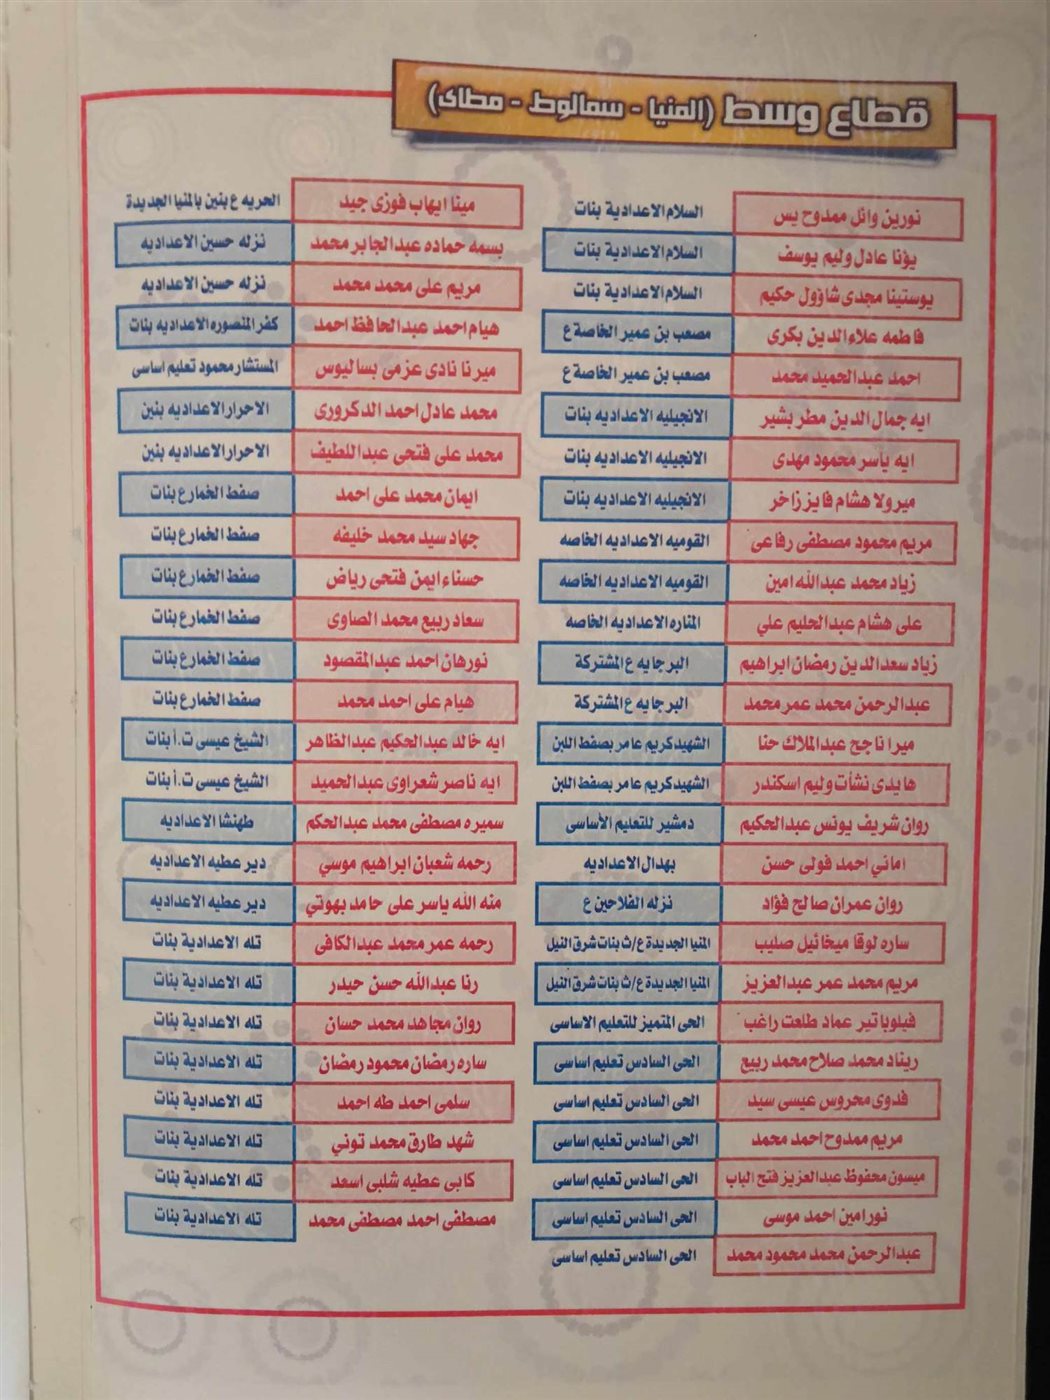 قطاع وسط (المنيا - سمالوط - مطاى)
نورين وائل ممدوح يس السلام الاعدادية بنات
يؤنا عادل وليم يوسف السلام الاعدادية بنات
يوستينا مجدى شاؤول حكيم السلام الاعدادية بنات
فاطمه علاءالدين بكرى مصعب بن عمير الخاصة ع
احمد عبدالحميد محمد مصعب بن عمير الخاصة ع
ايه جمال الدين مطر بشير الانجيليه الاعداديه بنات
ايه ياسر محمود مهدى الانجيليه الاعداديه بنات
ميرولا هشام فايز زاخر الانجيليه الاعداديه بنات
مريم محمود مصطفى رفاعى القوميه الاعداديه الخاصه
زياد محمد عبدالله امين القوميه الاعداديه الخاصه
على هشام عبدالحليم علي المناره الاعداديه الخاصه
زياد سعدالدين رمضان ابراهيم البرجايه ع المشتركة
عبدالرحمن محمد عمر محمد البرجايه ع المشتركة
ميرا ناجح عبدالملاك حنا الشهيد كريم عامر بصفط اللبن
هايدى نشأت وليم اسكندر الشهيد كريم عامر بصفط اللبن
روان شريف يونس عبدالحكيم دمشير للتعليم الأساسى
اماني احمد فولى حسن بهدال الاعداديه
روان عمران صالح فؤاد نزله الفلاحين ع
ساره لوقا ميخائيل صليب المنيا الجديدة ع/ث بنات شرق النيل
مريم محمد عمر عبدالعزيز المنيا الجديدة ع/ث بنات شرق النيل
فيلوباتير عماد طلعت راغب الحى المتميز للتعليم الاساسى
ريناد محمد صلاح محمد ربيع الحى السادس تعليم اساسى
فدوى محروس عيسى سيد الحى السادس تعليم اساسى
مريم ممدوح احمد محمد الحى السادس تعليم اساسى
ميسون محفوظ عبدالعزيز فتح الباب الحى السادس تعليم اساسى
نور امين احمد موسى الحى السادس تعليم اساسى
عبدالرحمن محمد محمود محمد الحى السادس تعليم اساسى
مينا ايهاب فوزى جيد الحريه ع بنين بالمنيا الجديدة
بسمه حماده عبدالجابر محمد نزله حسين الاعداديه
مريم على محمد محمد نزله حسين الاعداديه
هيام احمد عبدالحافظ احمد كفر المنصوره الاعداديه بنات
ميرنا نادى عزمى بساليوس المستشار محمود تعليم اساسى
محمد عادل احمد الدكرورى الاحرار الاعداديه بنين
محمد على فتحى عبداللطيف الاحرار الاعداديه بنين
ايمان محمد على احمد صفط الخمار ع بنات
جهاد سيد محمد خليفه صفط الخمار ع بنات
حسناء ايمن فتحى رياض صفط الخمار ع بنات
سعاد ربيع محمد الصاوى صفط الخمار ع بنات
نورهان احمد عبدالمقصود صفط الخمار ع بنات
هيام على احمد محمد صفط الخمار ع بنات
ايه خالد عبدالحكيم عبدالظاهر الشيخ عيسى ت.أ بنات
ايه ناصر شعراوى عبدالحميد الشيخ عيسى ت.أ بنات
سميره مصطفى محمد عبدالحكم طهنشا الاعداديه
رحمه شعبان ابراهيم موسي دير عطيه الاعداديه
منه الله ياسر على حامد بهوتي دير عطيه الاعداديه
رحمه عمر محمد عبدالكافى تله الاعدادية بنات
رنا عبدالله حسن حيدر تله الاعدادية بنات
روان مجاهد محمد حسان تله الاعدادية بنات
ساره رمضان محمود رمضان تله الاعدادية بنات
سلمى احمد طه احمد تله الاعدادية بنات
شهد طارق محمد توني تله الاعدادية بنات
كابى عطيه شلبى اسعد تله الاعدادية بنات
مصطفى احمد مصطفى محمد تله الاعدادية بنات